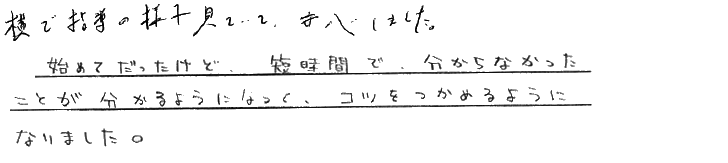 横で指導の様子見ていて、安心しました。
始めてだったけど、短時間で、分からなかった
ことが分かるようになって、コツをつかめるように
なりました。